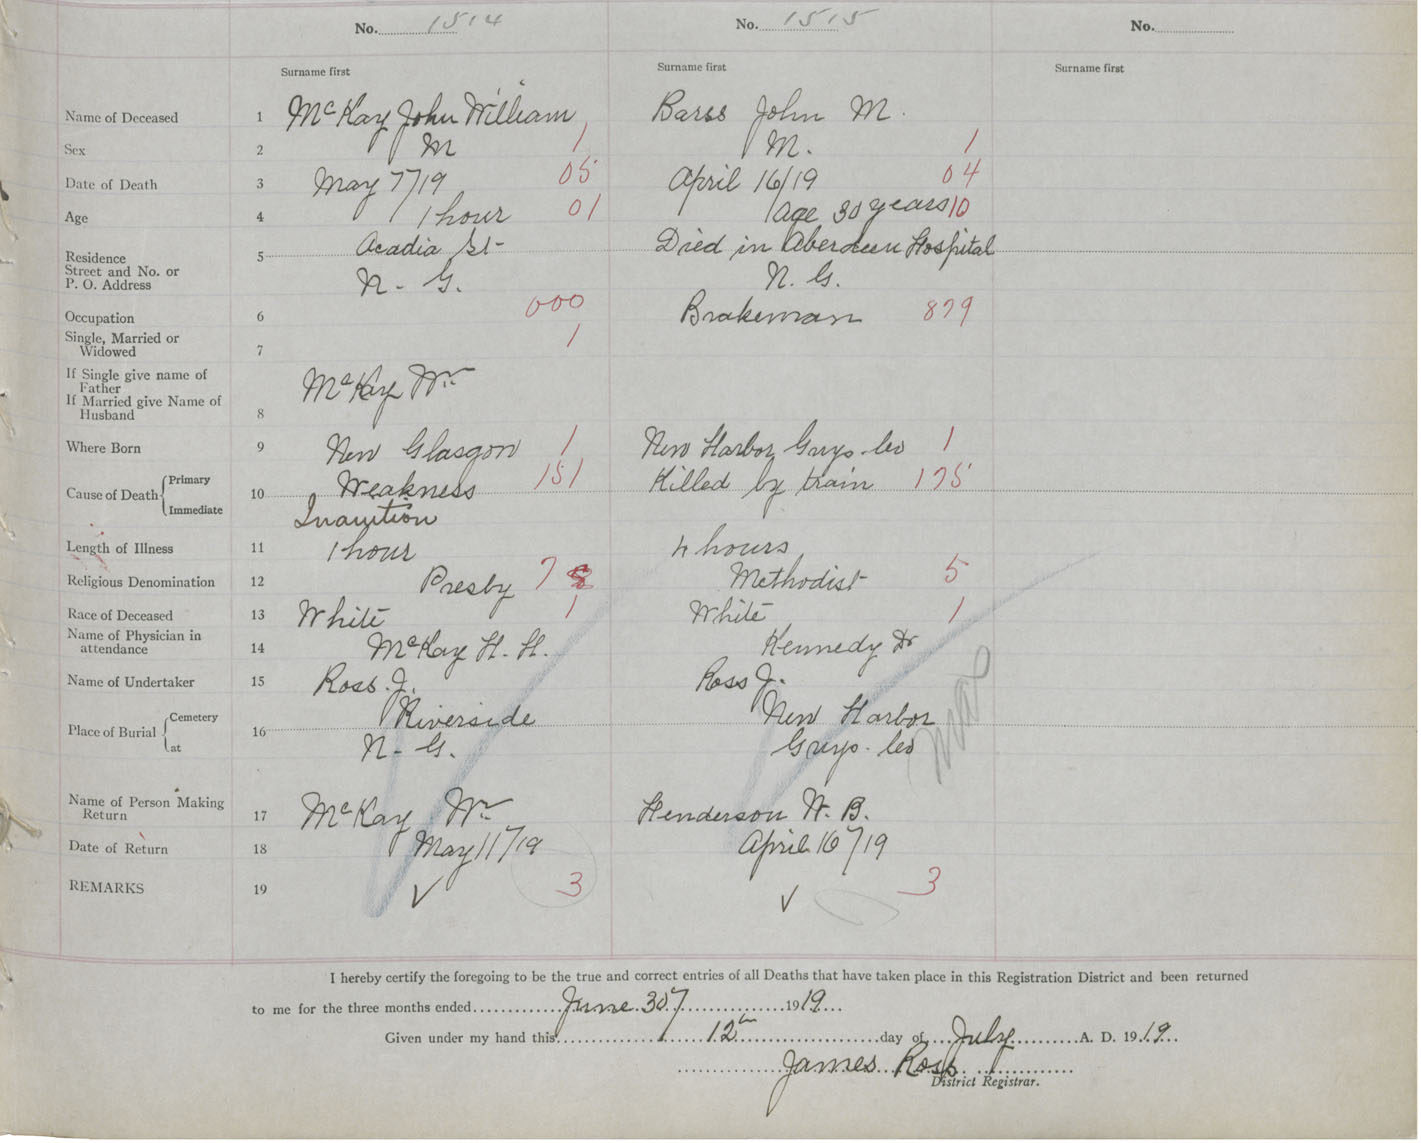 No. 1514 No. 1515 No.
Surname first Surname first Surname first
Name of Deceased 1 McKay John William Barss John M.
Sex 2 M 1 M. 1
Date of Death 3 May 7/19 05 April 16/19 04
Age 4 1 hour 01 age 30 years 10
Residence
Street and No. or
P. O. Address
5 Acadia St Died in Aberdeen Hospital
N. G. N. G.
Occupation 6 000 Brakeman 879
Single, Married or
Widowed 7 1
If Single give name of
Father
If Married give Name of
Husband 8 McKay Wm
Where Born 9 New Glasgow 1 New Harbor Guys. Co 1
Cause of Death Primary
Immediate
10 Weakness 151 Killed by train 175
Inanition
Length of Illness 11 1 hour 4 hours
Religious Denomination 12 Presby 7 8 Methodist 5
Race of Deceased 13 White 1 White 1
Name of Physician in
attendance 14 McKay H. H. Kennedy Dr
Name of Undertaker 15 Ross. J. Ross J.
Place of Burial Cemetery
at
16 Riverside New Harbor
N. G. Guys. Co
Name of Person Making
Return 17 McKay Wm Henderson W. B.
Date of Return 18 May 11/19 April 16/19
REMARKS 19 ✓ 3 ✓ 3
I hereby certify the foregoing to be the true and correct entries of all Deaths that have taken place in this Registration District and been returned
to me for the three months ended June 30 1919
Given under my hand this 12th day of July A. D. 1919
James Ross
District Registrar.